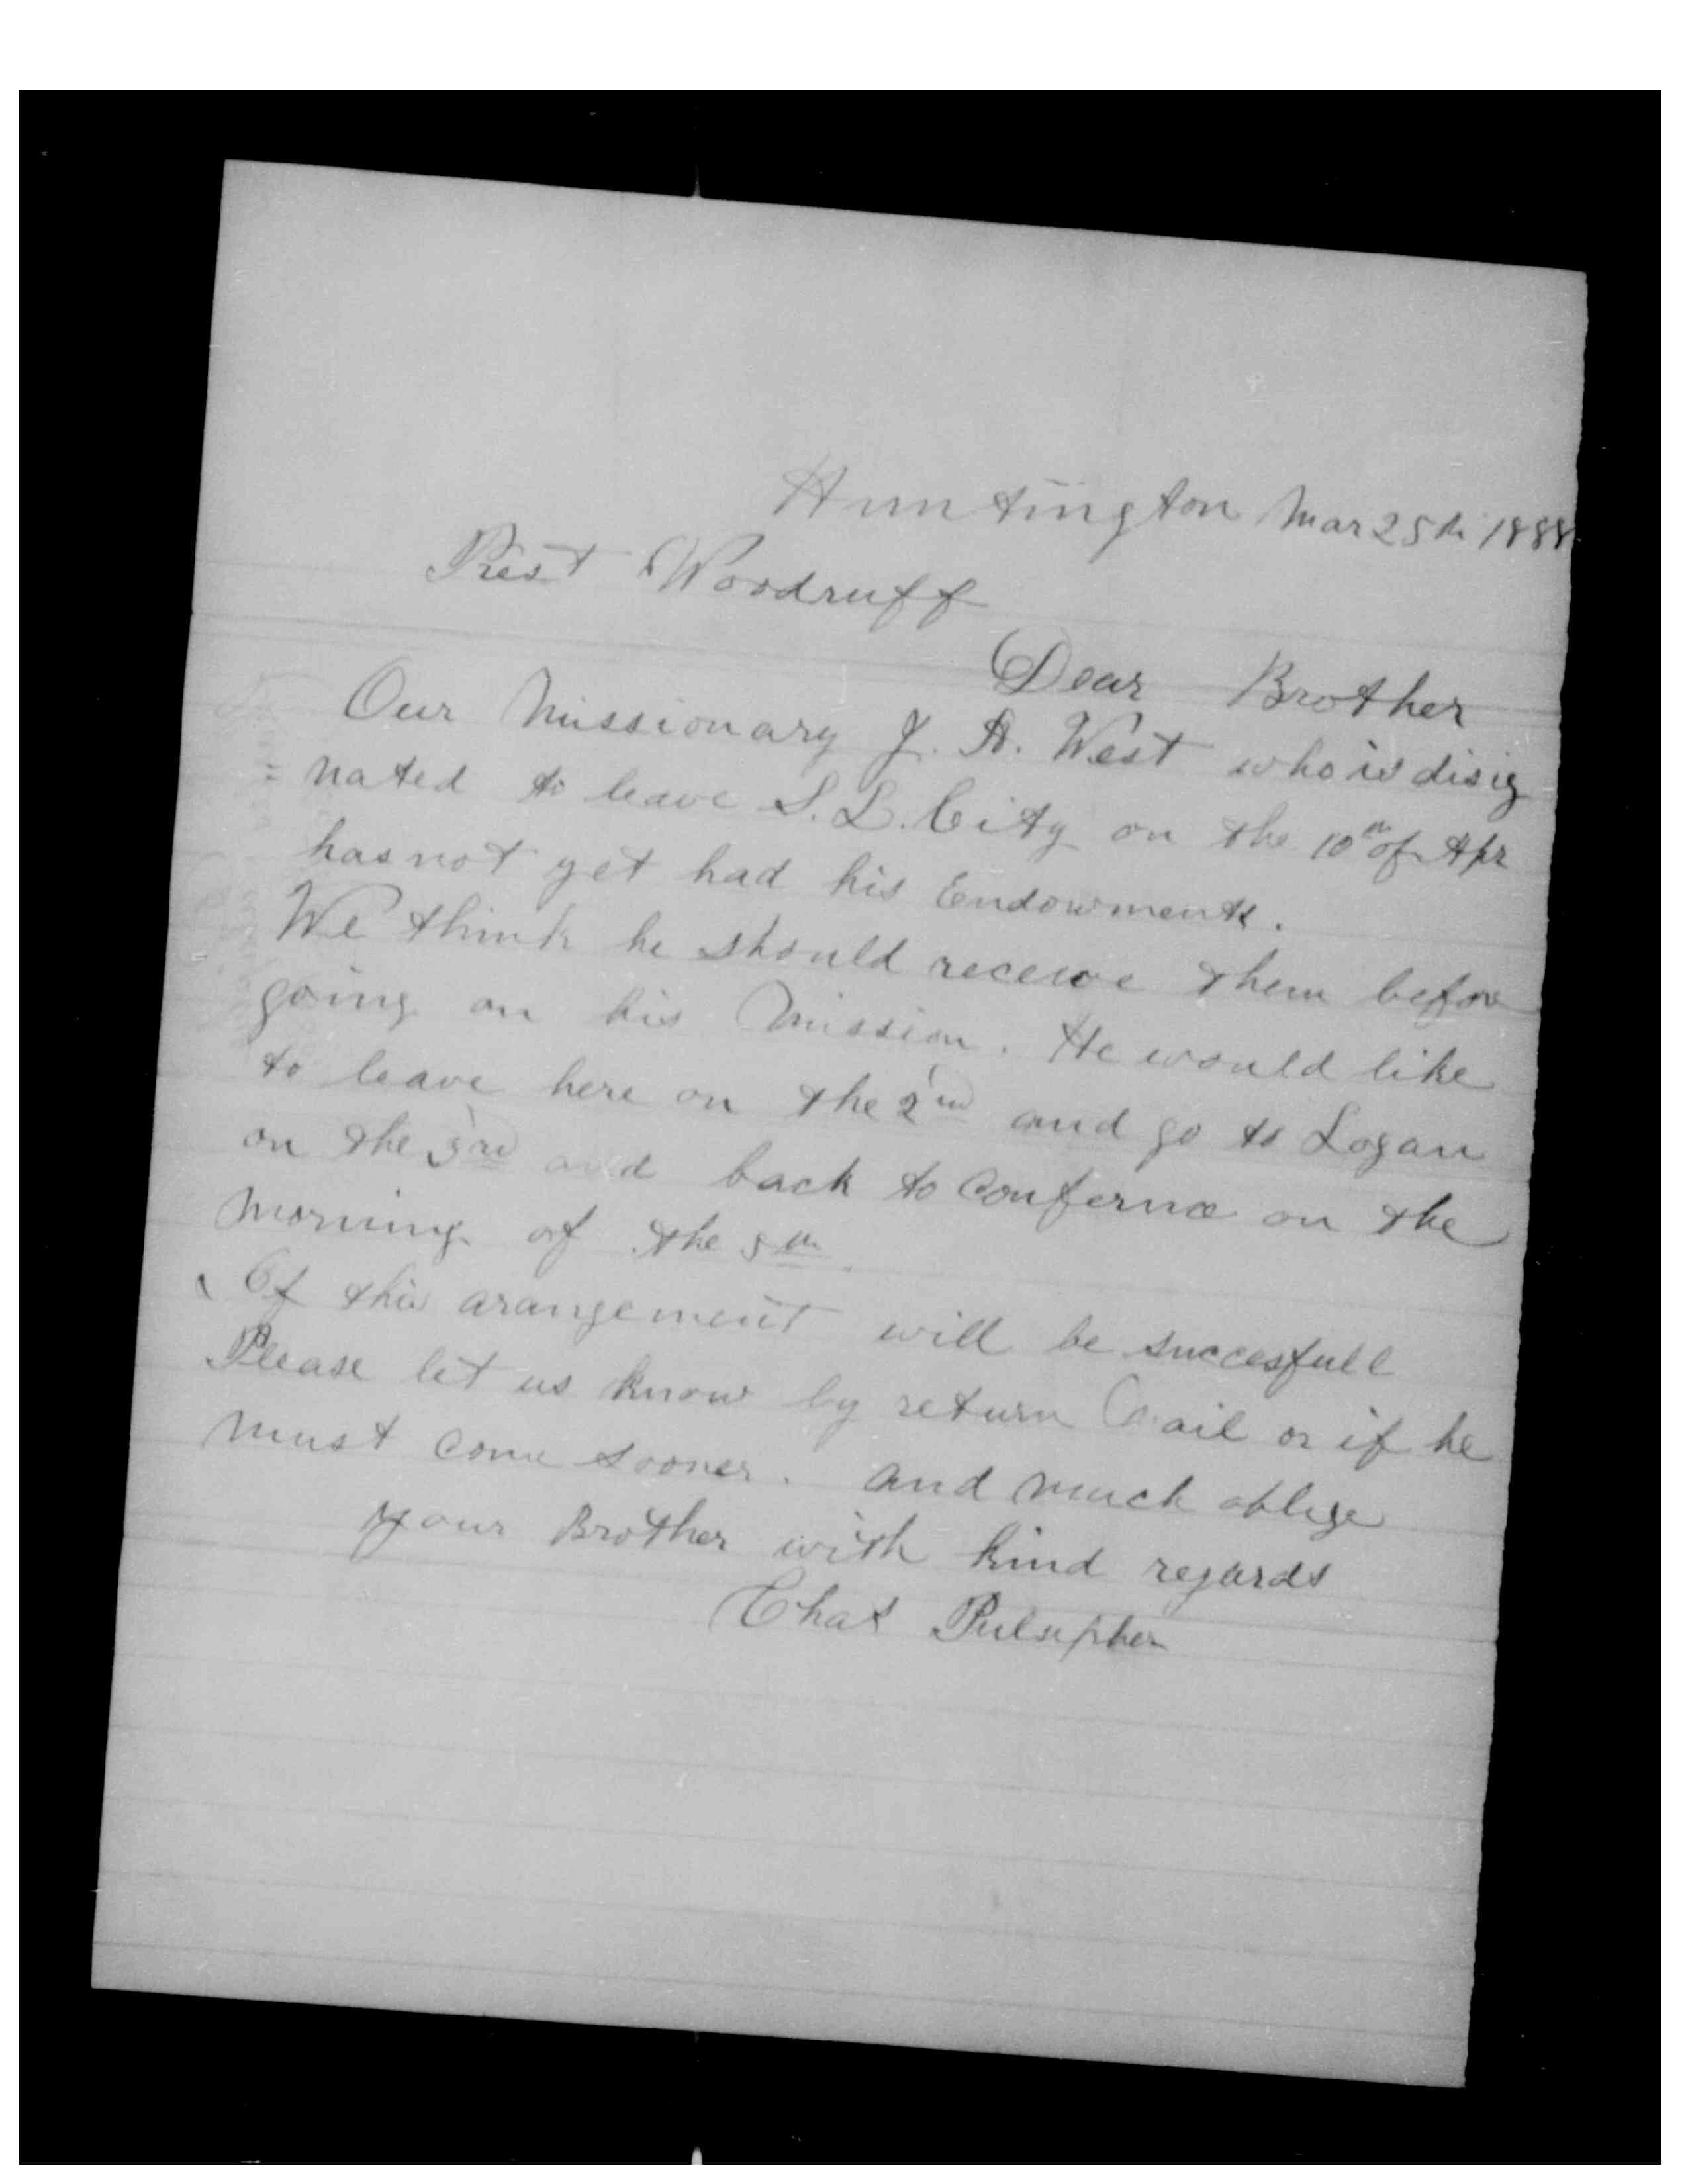 Huntington Mar 25th 1888
Prest Woodruff
Dear Brother
Our Missionary J. A. West who is disig
= nated to leave S. L. City on the 10th of Apr
has not yet had his Endowments.
We think he should receive them before
going on his Mission. He would like
to leave here on the 2nd and go to Logan
on the 3rd and back to Confernce on the
morning of the 5th.
If this arangement will be succesfull
Please let us know by return Mail or if he
must come sooner. and much oblige
your Brother with kind regards
Chas Pulsipher